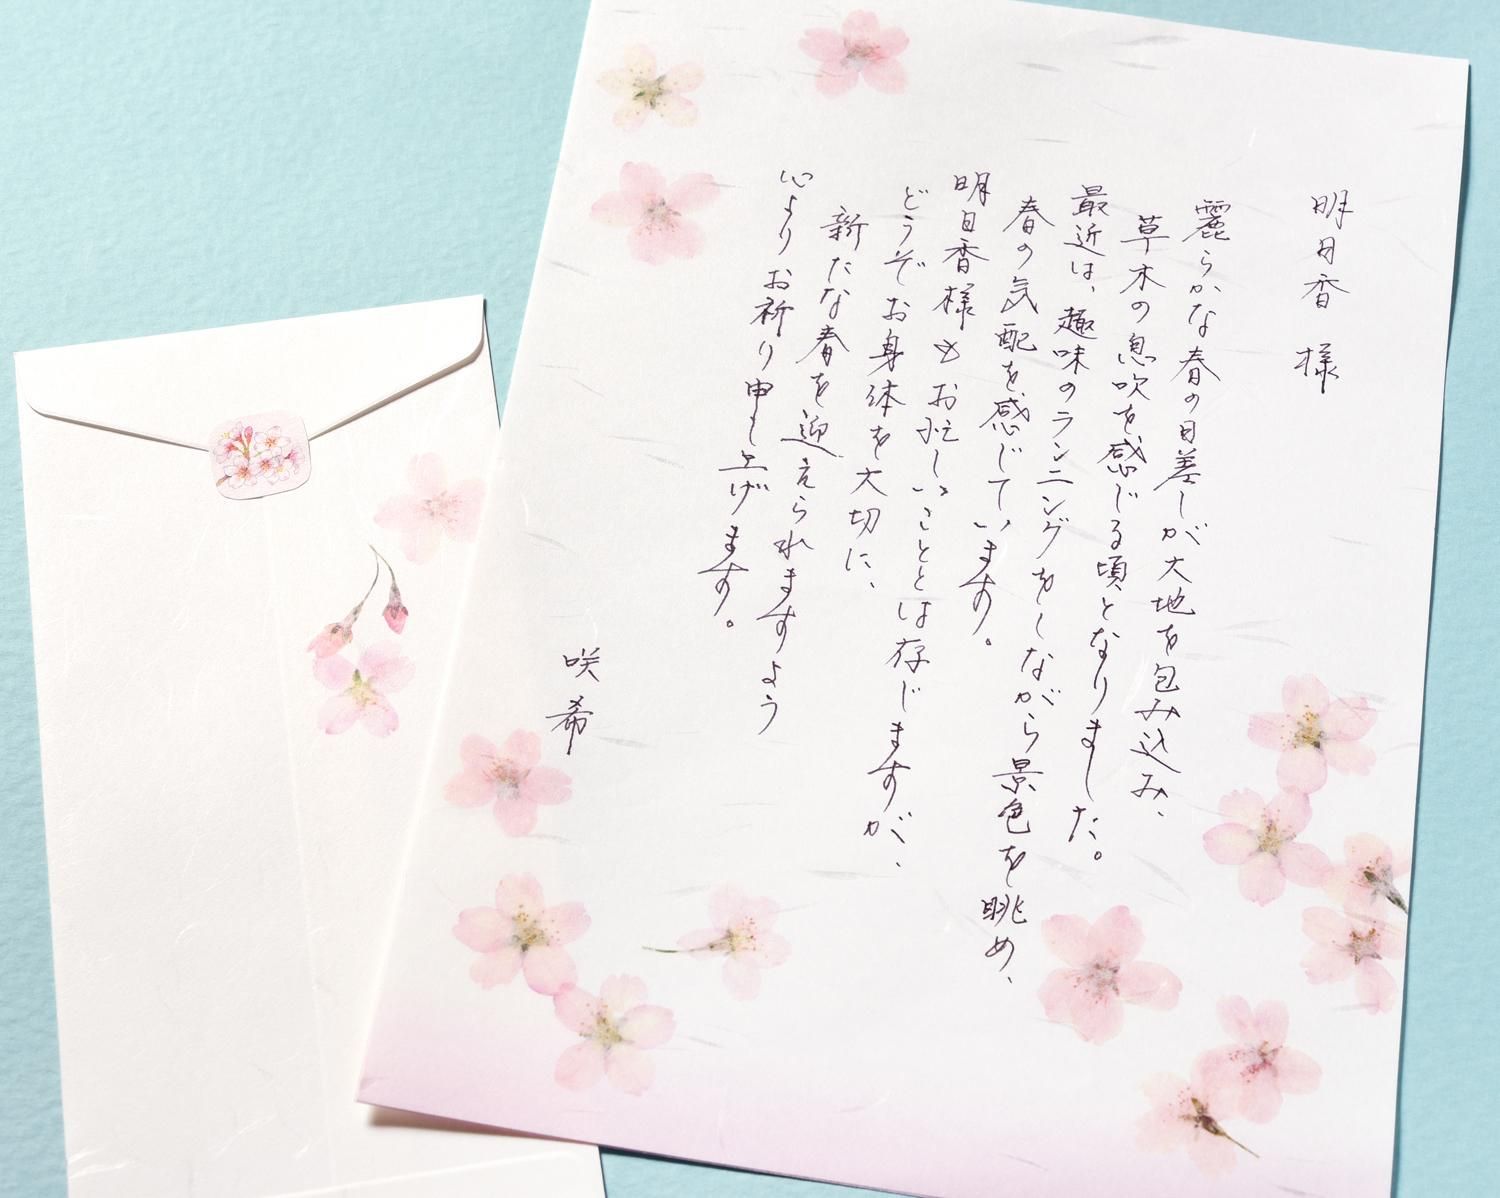 明日香 様
麗らかな春の日差しが大地を包み込み、
草木の息吹を感じる頃となりました。
最近は、趣味のランニングをしながら景色を眺め、
春の気配を感じています。
明日香様もお忙しいこととは存じますが、
どうぞお身体を大切に、
新たな春を迎えられますよう
心よりお祈り申し上げます。
咲希